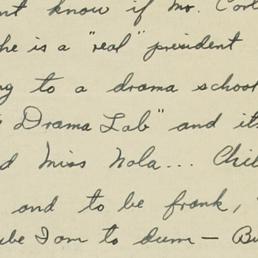 nt know if Mr. Cort
he is a "real" president
ng to a drama school
Drama Lab" and it
d Miss Nola... Chil
and to be frank,
ybe I am to dum — Bu